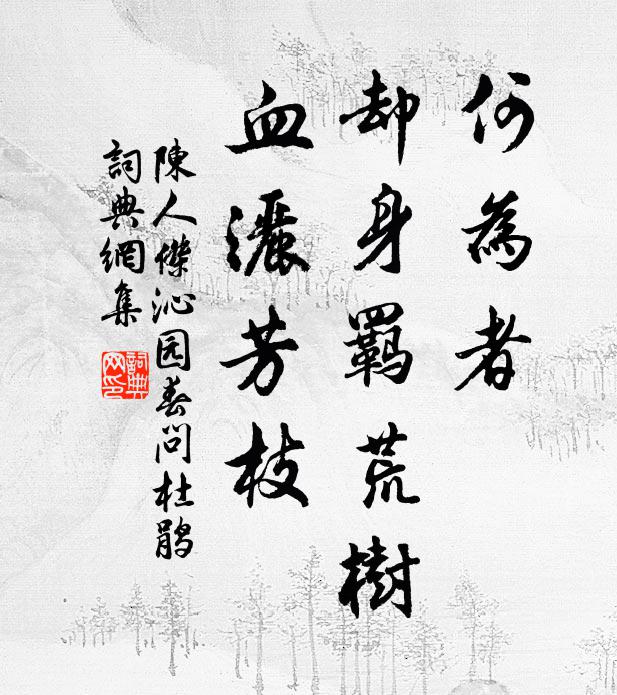 何為者
却身羈荒樹
血灑芳枝
陳人傑沁园春问杜鹃
詞典網集
詞典网印